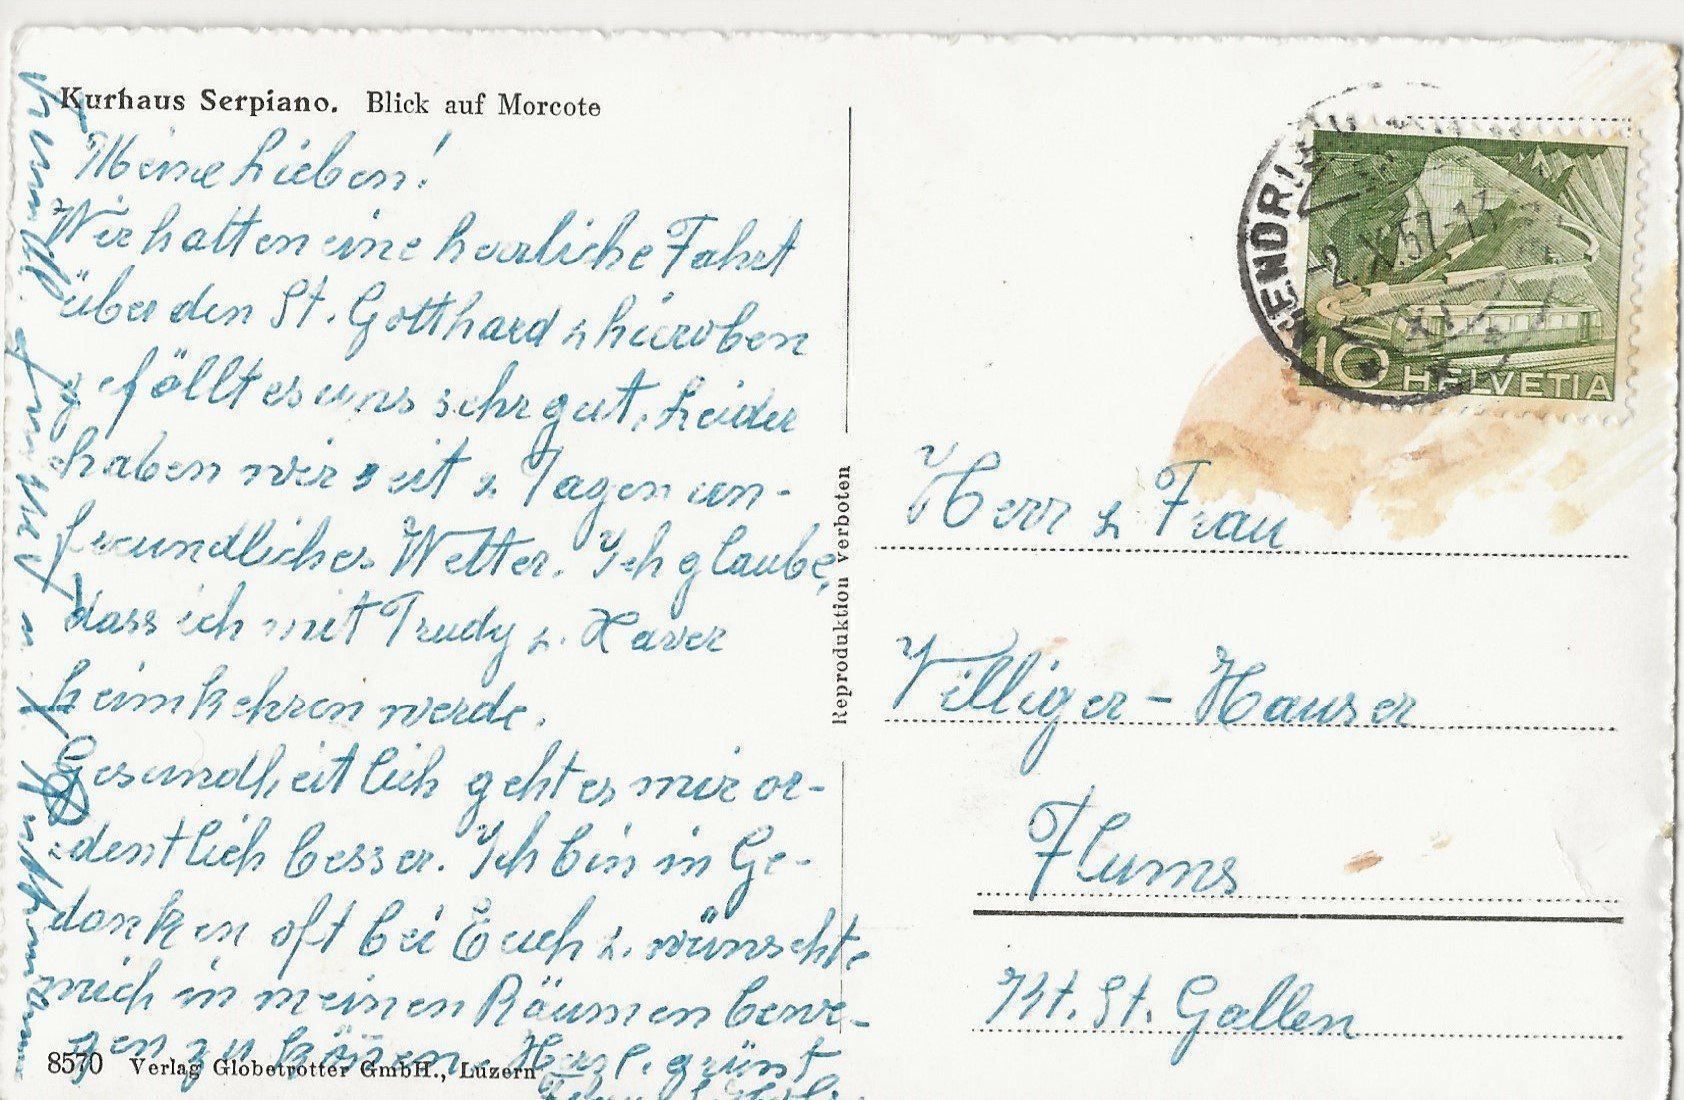 Kurhaus Serpiano. Blick auf Morcote
Meine Lieben!
Wir hatten eine herrliche Fahrt
über den St. Gotthard & hieroben
gefällt es uns sehr gut. Leider
haben wir seit 2. Tagen un-
freundliches Wetter. Ich glaube,
dass ich mit Trudy u. Xaver
heimkehren werde.
Gesundheitlich geht es mir or-
dentlich besser. Ich bin in Ge-
danken oft bei Euch u. wünschte
mich in meinen Räumen bewe-
gen zu können. Herzl. grüsst
8570 Verlag Globetrotter GmbH., Luzern
Reproduktion verboten
MENDRISIO
2.X.57-11
10 HELVETIA
Herr & Frau
Villiger - Hauser
Flums
Kt. St. Gallen